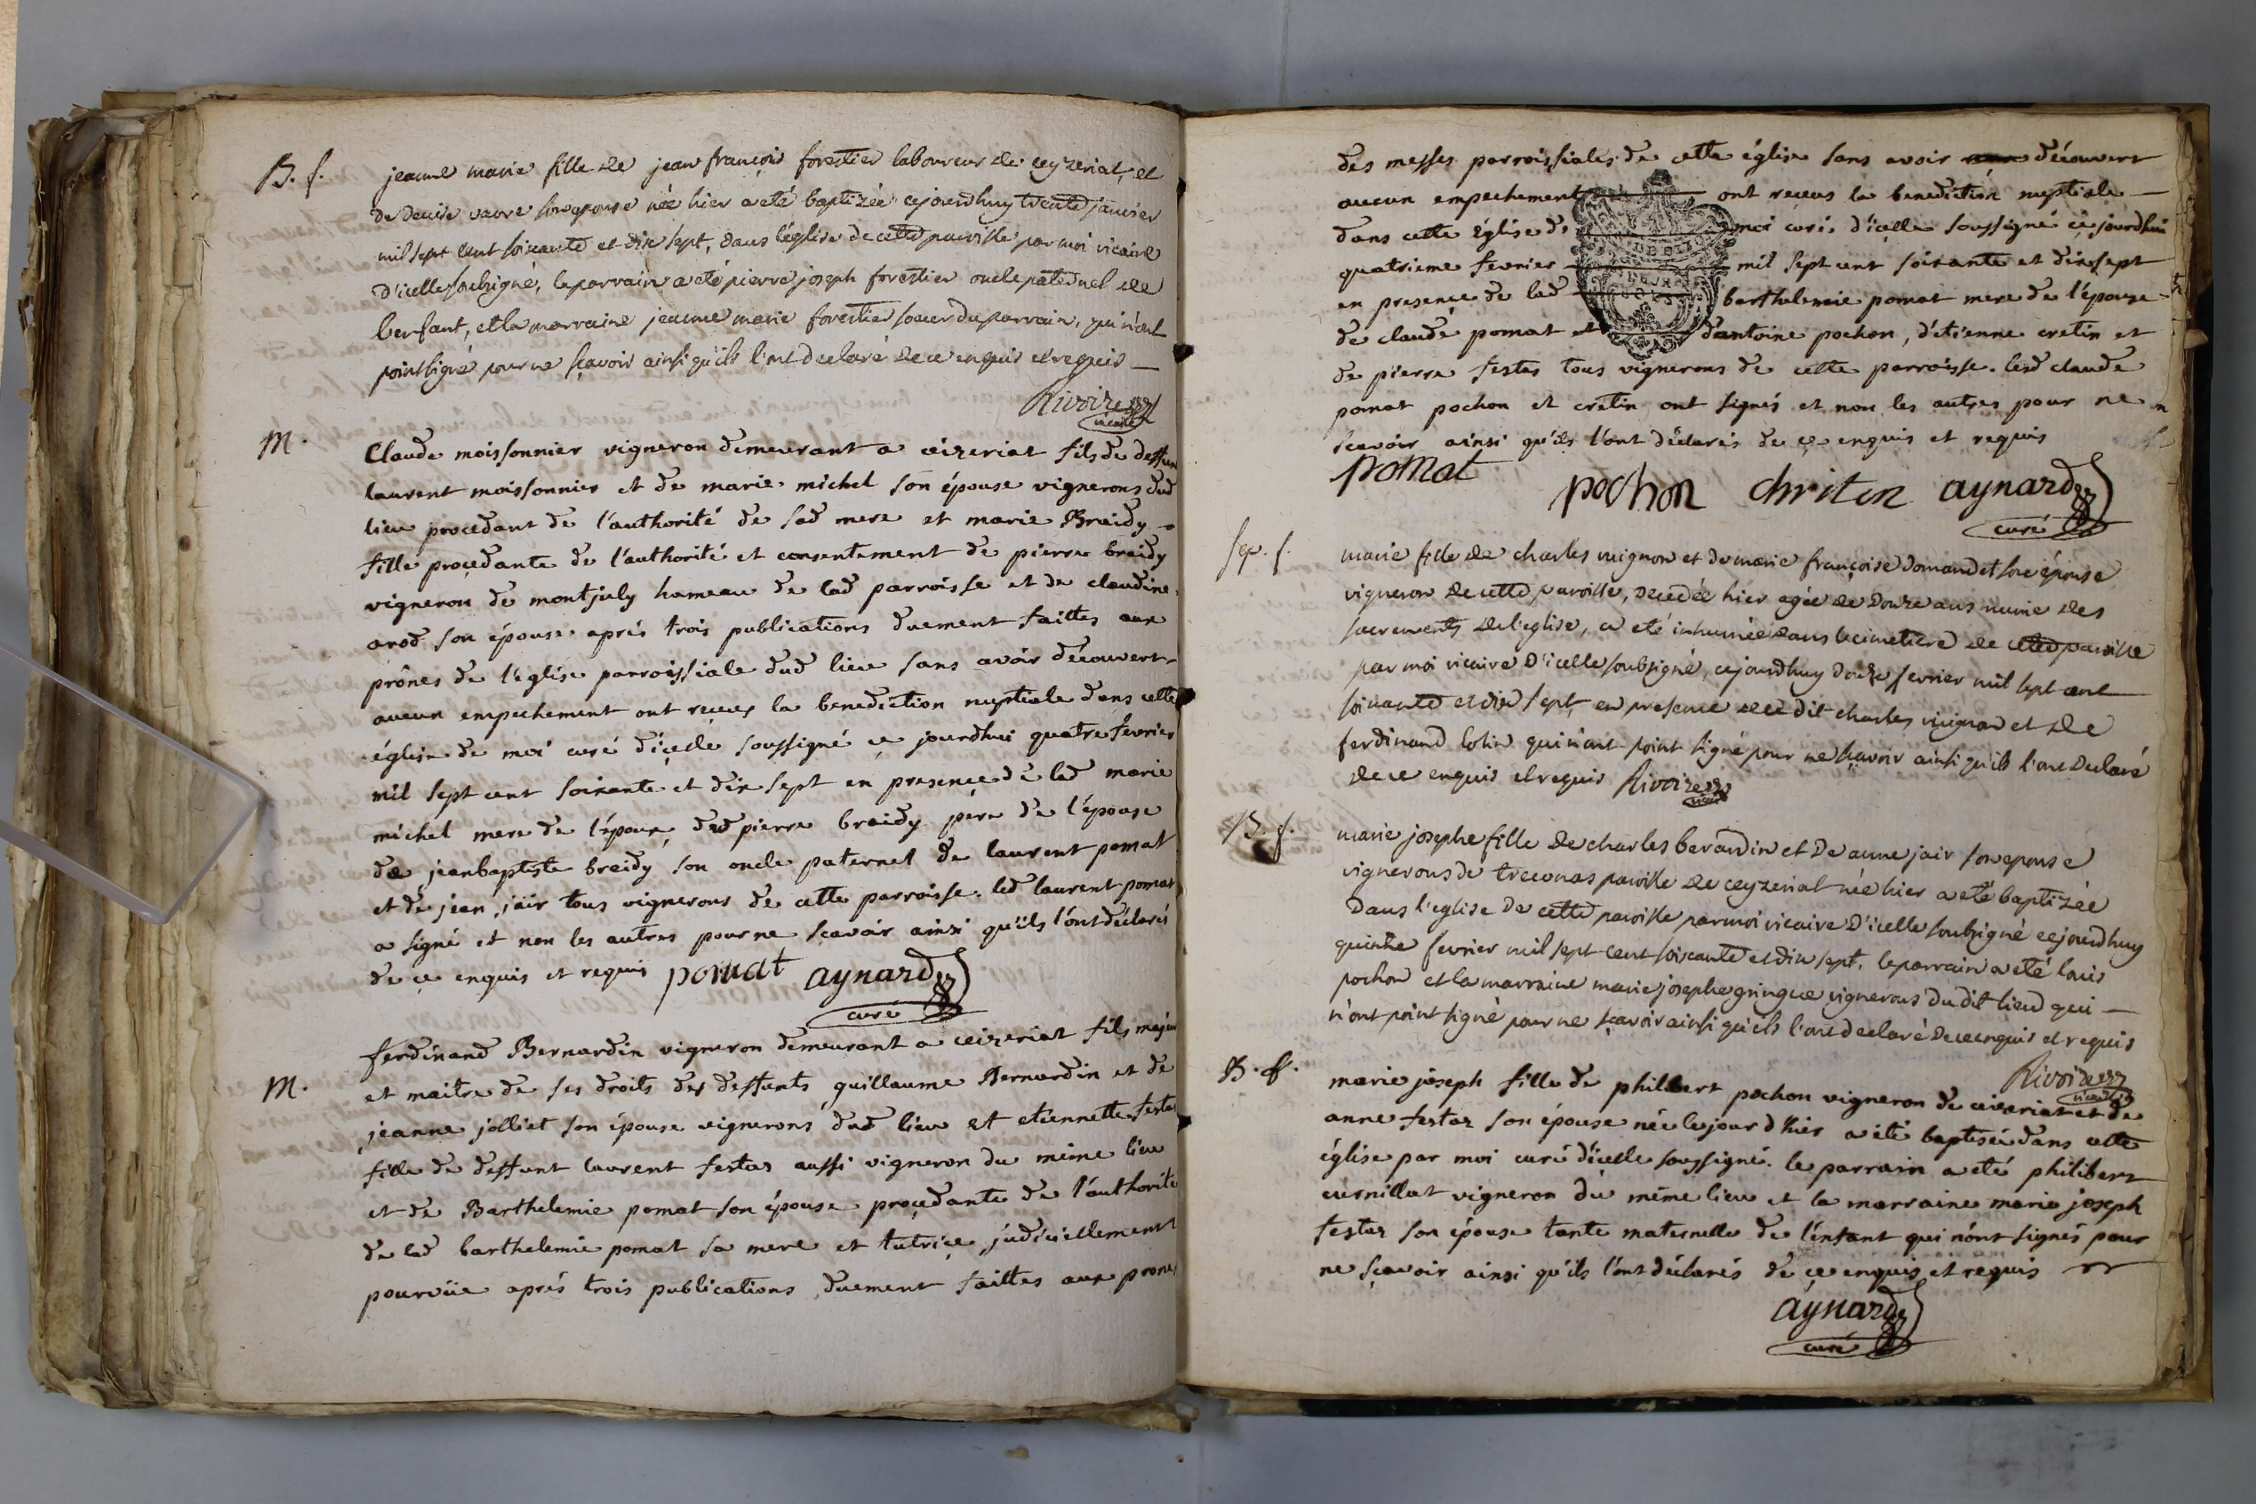 B. f.
jeanne marie fille de jean françois forestier laboureur de ceyzeriat, et
de denise vavre son epouse née hier a eté baptizée cejourdhuy trente janvier
mil sept cent soixante et dix sept, dans l'église de cette paroisse par moi vicaire
d'icelle soubsigné, le parrain a eté pierre joseph forestier oncle paternel de
l'enfant, et la marraine jeanne marie forestier soeur du parrain, qui n'ont
point signé pour ne sçavoir ainsi qu'ils l'ont declaré de ce enquis et requis —
Rivoire
vicaire
M.
Claude moissonnier vigneron demeurant a ceizeriat fils de deffunt
laurent moissonnier et de marie michel son épouse vignerons dud
lieu procedant de l'authorité de sad mere et marie Breidy
fille proçedante de l'authorité et consentement de pierre breidy
vigneron de montjuly hameau de lad parroisse et de claudine
arod son épouse aprés trois publications duement faittes aux
prônes de l'eglise parroissiale dud lieu sans avoir découvert
aucun empechement ont reçues la benediction nuptiale dans cette
église de moi curé d'icelle soussigné ce jourdhui quatre fevrier
mil sept cent soixante et dix sept en presence de lad marie
michel mere de l'époux, dud pierre breidy pere de l'épouse
de jeanbaptiste breidy son oncle paternel de laurent pomat
et de jean jair tous vignerons de cette parroisse. led laurent pomat
a signé et non les autres pour ne sçavoir ainsi qu'ils l'ont déclarés
de ce enquis et requis pomat aynard
curé
M.
ferdinand Bernardin vigneron demeurant a ceizeriat fils majeur
et maitre de ses droits des deffunts guillaume Bernardin et de
jeanne jolliet son épouse vignerons dud lieu et etiennette festas
fille de deffunt laurent festas aussi vigneron du même lieu
et de Barthelemie pomat son épouse proçedante de l'authorité
de lad barthelemie pomat sa mere et tutriçe judiciellement
pourvüe aprés trois publications duement faittes aux prones
des messes parroissiales de cette église sans avoir découvert
aucun empechement ont reçeus la benediction nuptiale —
dans cette église de moi curé d'icelle soussigné ce jourdhui
quatrieme fevrier mil sept cent soixante et dix sept
en presence de lad barthelemie pomat mere de l'épouse
de claude pomat et d'antoine pochon, d'étienne cretin et
de pierre festas tous vignerons de cette parroisse. lesd claude
pomat pochon et cretin ont signés et non les autres pour ne
scavoir ainsi qu'ils l'ont déclarés de ce enquis et requis
pomat pochon chriten aynard
curé
Sep. f.
marie fille de charles et de marie françoise domand et son épouse
vigneron de cette paroisse, decedée hier agée de douze ans munie des
sacrements de l'eglise, a eté inhumée dans le cimetiere de cette paroisse
par moi vicaire d'icelle soubsigné, cejourdhuy douze fevrier mil sept cent
soixante et dix sept en presence de dit charles et de
ferdinand qui n'ont point signé pour ne sçavoir ainsi qu'ils l'ont declaré
de ce enquis et requis Rivoire
vicaire
B. f.
marie josephe fille de charles berardin et de anne jair son epouse
vignerons de treconas paroisse de ceyzeriat née hier a eté baptizée
dans l'eglise de cette paroisse par moi vicaire d'icelle soubsigné cejourdhuy
quinze fevrier mil sept cent soixante et dix sept. le parrain a eté louis
pochon et la marraine marie josephe gringue vignerons du dit lieu qui —
n'ont point signé pour ne sçavoir ainsi qu'ils l'ont declaré de ce enquis et requis
Rivoire
vicaire
B. f.
marie joseph fille de philibert pochon vigneron de ceizeriat et de
anne festas son épouse née le jour d'hier a été baptisée dans cette
église par moi curé d'icelle soussigné. le parrain a eté philibert
cusnillat vigneron du même lieu et la marraine marie joseph
festas son épouse tante maternelle de l'enfant qui n'ont signés pour
ne sçavoir ainsi qu'ils l'ont déclarés de ce enquis et requis
aynard
curé